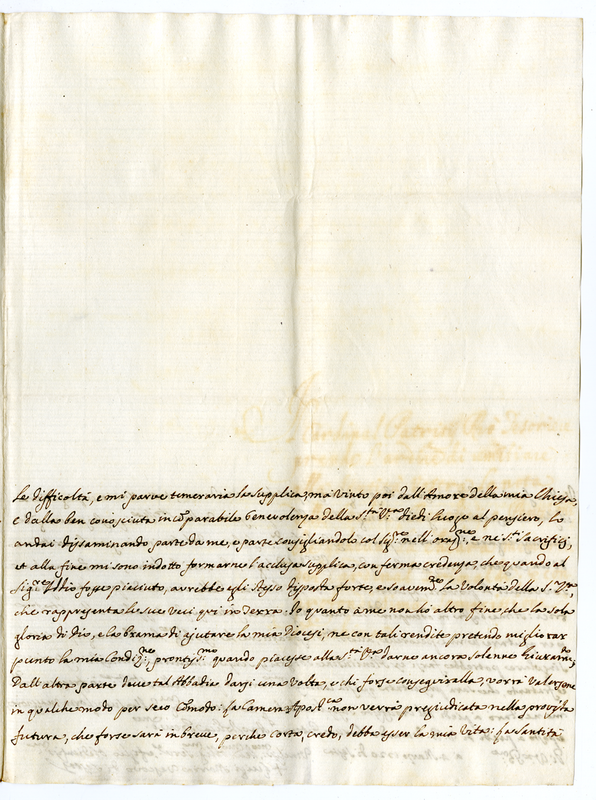 le difficoltà, e mi parve temeraria la supplica, ma vinto poi dall'Amore della mia Chiesa,
e dalla ben conosciuta incõparabile benevolenza della S.tà V.ra diedi luogo al pensiero, lo
andai disaminando parte da me, e parte consigliandolo col Sig.re nell'oraz.ne, e ne' S.ti Sacrifizj,
et alla fine mi sono indotto formarne l'acclusa supplica, con ferma credenza, che quando al
Sig.re Iddio fosse piaciuto, avrebbe egli stesso disposta forte, e soavem.te la Volontà della S. V.ra,
che rappresenta le sue Veci qui in Terra. Io quanto à me non hò altro fine che la sola
gloria di Dio, e la brama di ajutare la mia Diocesi, ne con tali rendite pretendo migliorar
punto la mia Condiz.ne, prontiss.mo quando piacesse alla S.tà V.ra darne ancora solenne Giuram.to,
Dall'altra parte deve tal Abbadia darsi una Volta, e chi forse conseguiralla, vorrà Valersene
in qualche modo per seco Comodo: la Camera Apost.ca non verrà pregiudicata nella provista
futura, che forse sarà in breve, perche corta, credo, debba esser la mia Vita: la Santità